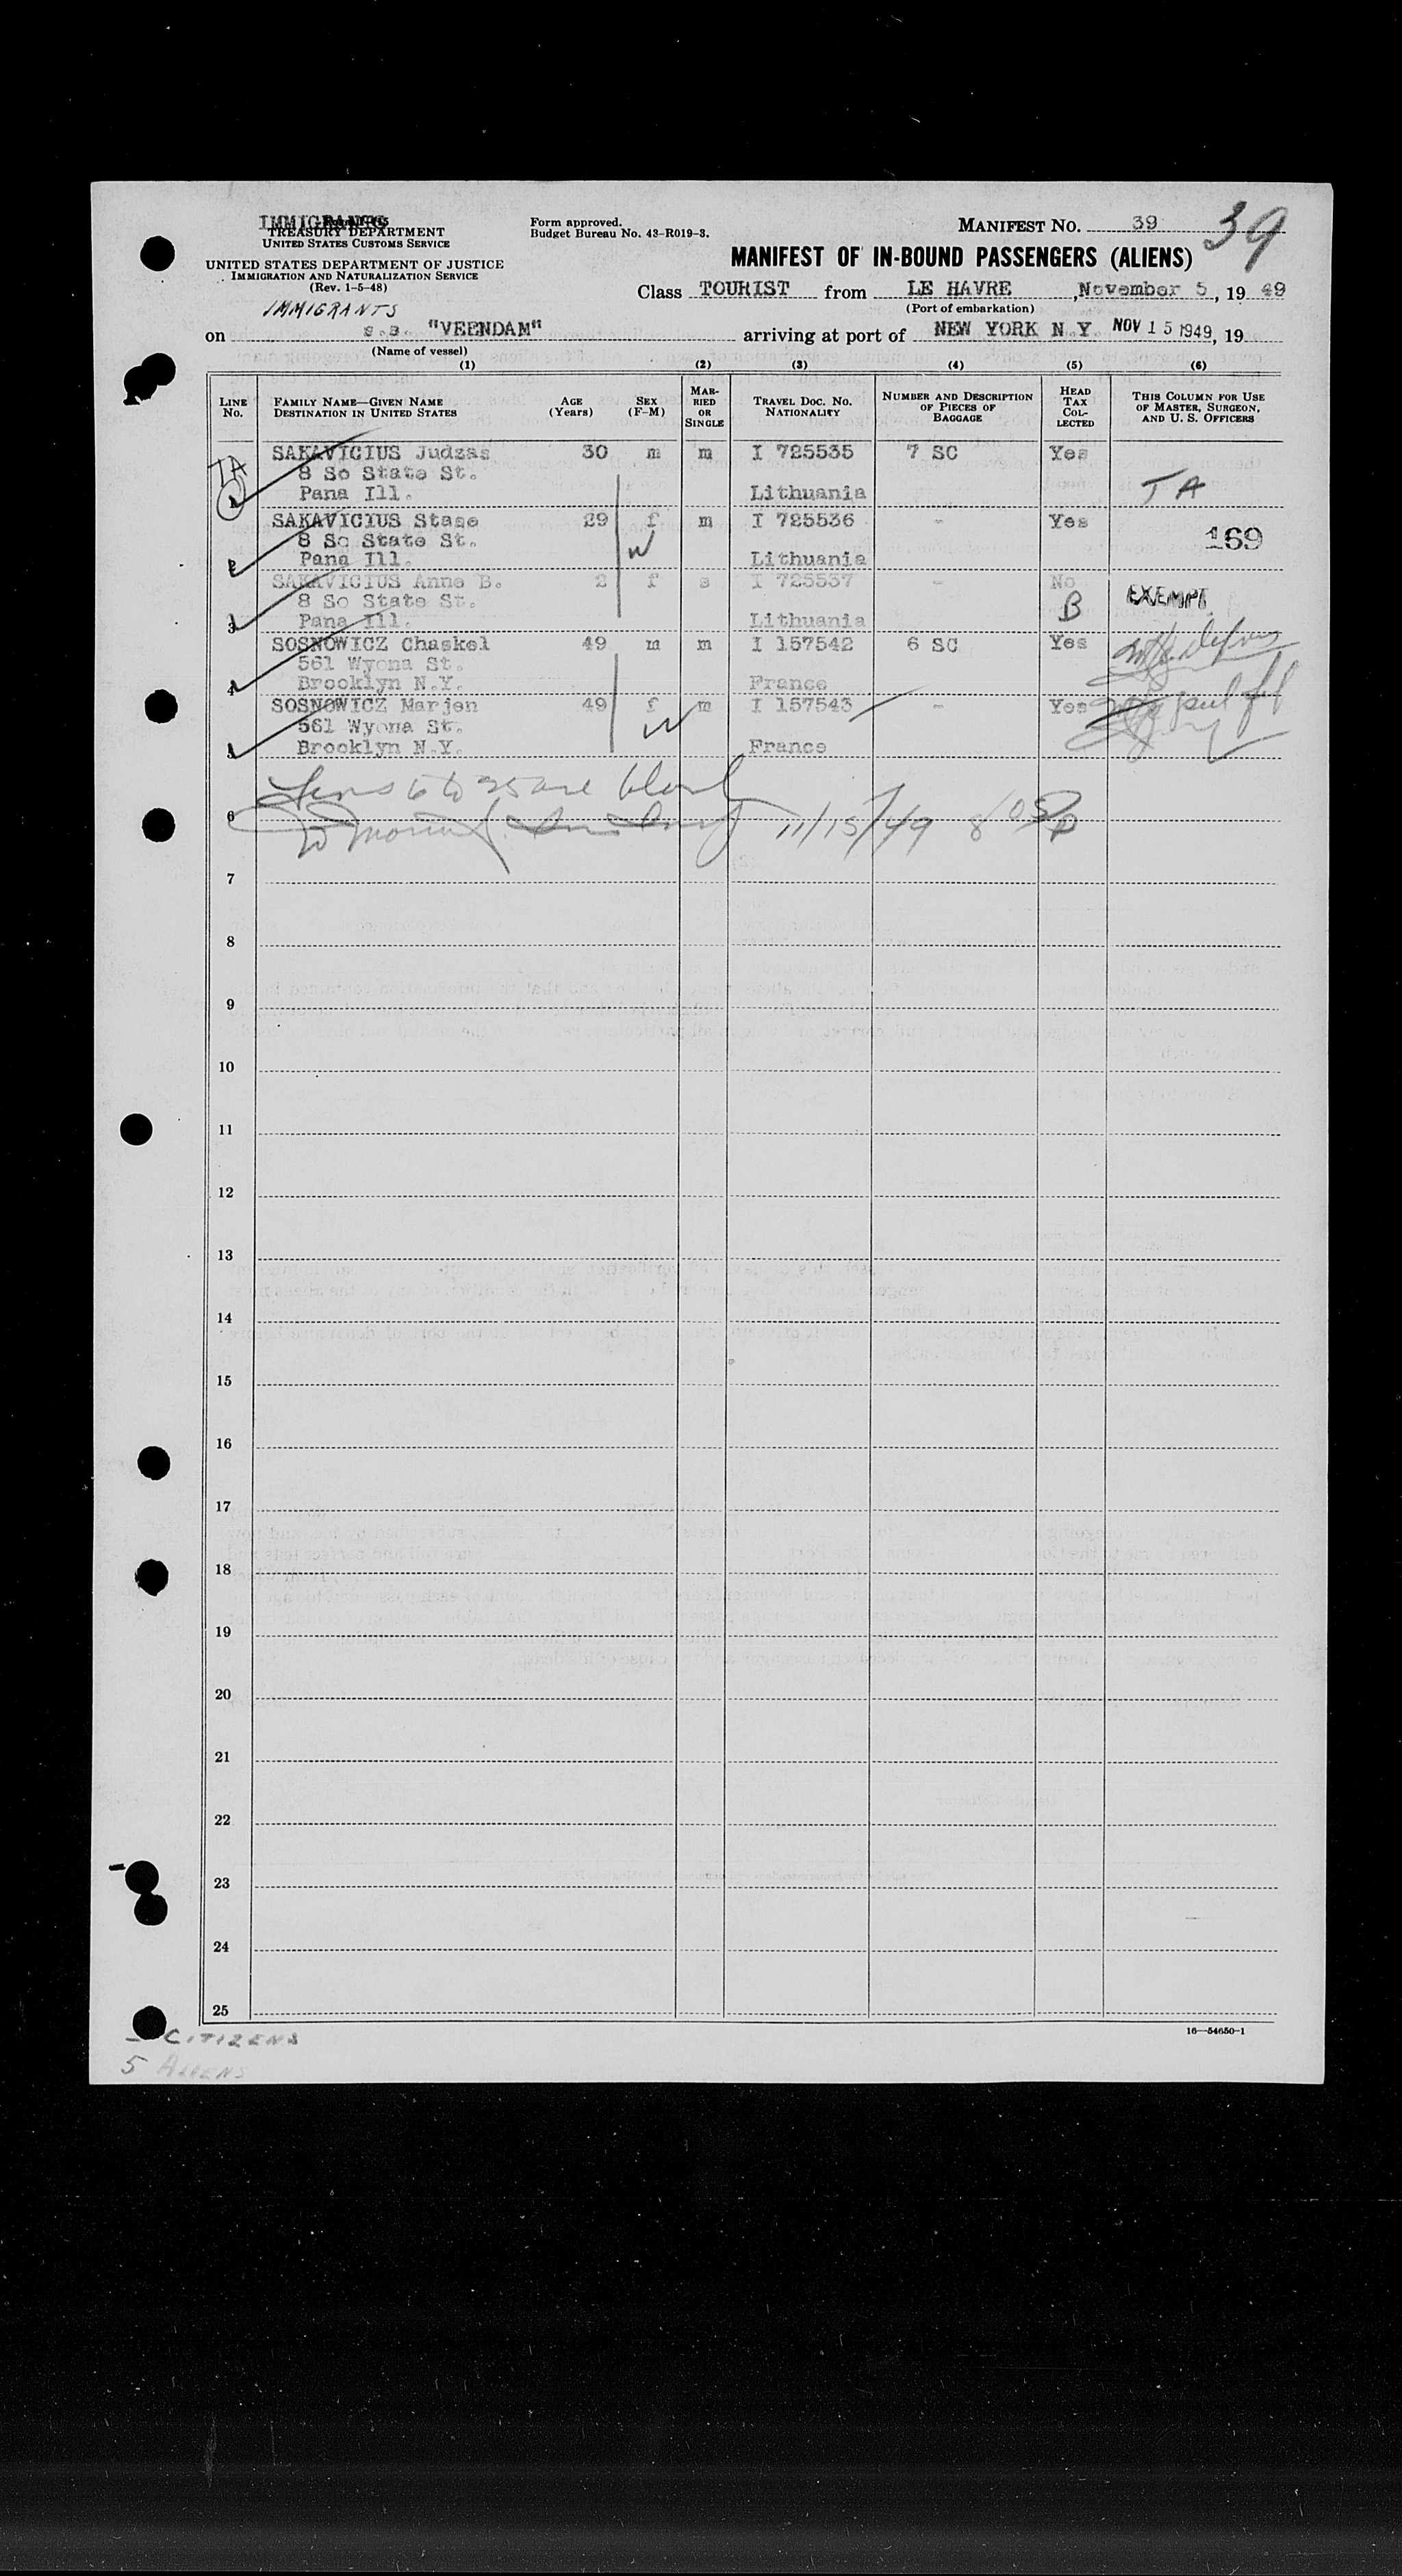 IMMIGRANTS
TREASURY DEPARTMENT
UNITED STATES CUSTOMS SERVICE
UNITED STATES DEPARTMENT OF JUSTICE
IMMIGRATION AND NATURALIZATION SERVICE
(Rev. 1-5-48)
IMMIGRANTS
Form approved.
Budget Bureau No. 43-R019-3.
MANIFEST NO. 39
39
MANIFEST OF IN-BOUND PASSENGERS (ALIENS)
Class TOURIST from LE HAVRE, November 5, 19 49
(Port of embarkation)
on s.s. "VEENDAM" arriving at port of NEW YORK N.Y. NOV 15 1949, 19
(Name of vessel)
(1) (2) (3) (4) (5) (6)
LINE No. FAMILY NAME—GIVEN NAME DESTINATION IN UNITED STATES AGE (Years) SEX (F-M) MARRIED OR SINGLE TRAVEL DOC. NO. NATIONALITY NUMBER AND DESCRIPTION OF PIECES OF BAGGAGE HEAD TAX COLLECTED THIS COLUMN FOR USE OF MASTER, SURGEON, AND U. S. OFFICERS
SAKAVICIUS Judzas 30 m m I 725535 7 SC Yes
TA 8 So State St.
Pana Ill. Lithuania TA
SAKAVICIUS Stase 29 f m I 725536 - Yes
8 So State St. W 169
Pana Ill. Lithuania
SAKAVICIUS Anne B. 2 f s I 725537 - No
8 So State St. B EXEMPT
3 Pana Ill. Lithuania
SOSNOWICZ Chaskel 49 m m I 157542 6 SC Yes
561 Wyona St.
4 Brooklyn N.Y. France
SOSNOWICZ Marjen 49 f m I 157543 - Yes
561 Wyona St. W
Brooklyn N.Y. France
Lines 6 to 25 are blank
6 11/15/49 8
7
8
9
10
11
12
13
14
15
16
17
18
19
20
21
22
23
24
25
16—54650-1
- CITIZENS
5 ALIENS